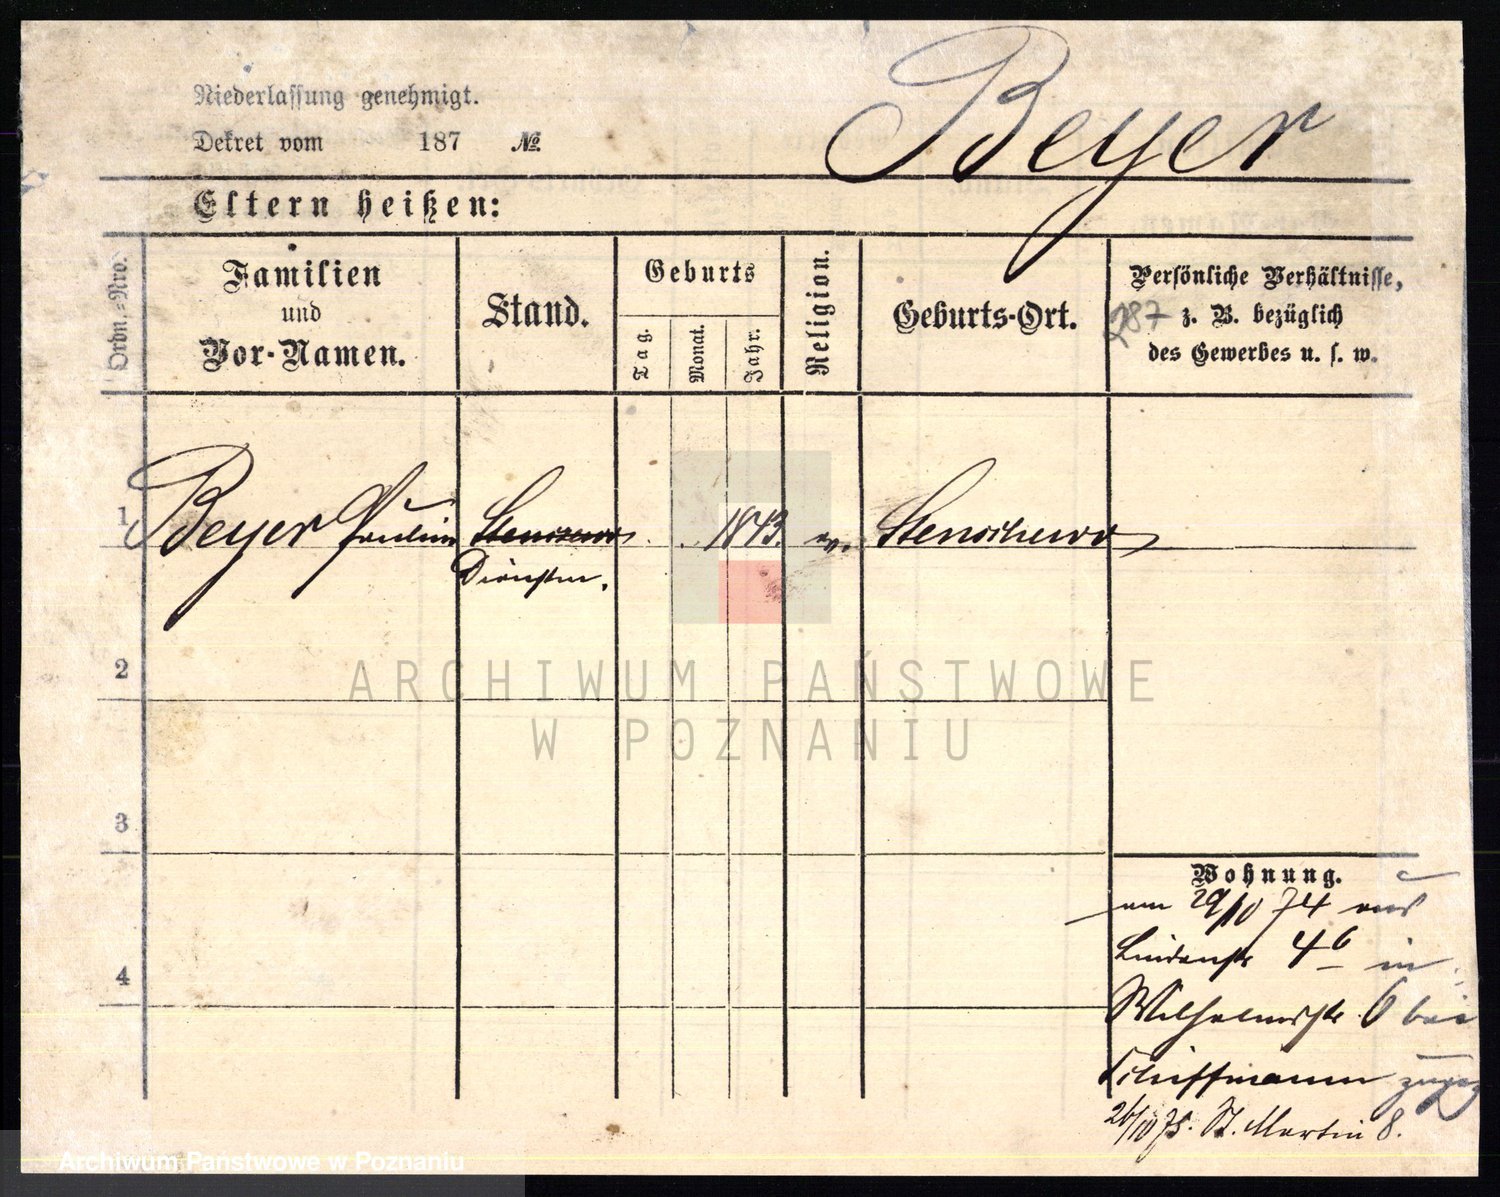 Beyer
Niederlassung genehmigt.
Dekret vom 187 №
Eltern heißen:
Ordn.-Nro.
Familien
und
Vor-Namen.
Stand.
Geburts
Tag.
Monat.
Jahr.
Religion.
Geburts-Ort.
Persönliche Verhältnisse,
z. B. bezüglich
des Gewerbes u. s. w.
287
1 Beyer Pauline Stenszewo 1843. ev. Stenschewo
Dienstm.
2
3
4
Wohnung.
am 29/10 74 aus
Lindenstr 4b in
Wilhelmstr 6 bei
Schiffmann zugez
26/10 75. St. Martin 8.
ARCHIWUM PAŃSTWOWE
W POZNANIU
Archiwum Państwowe w Poznaniu